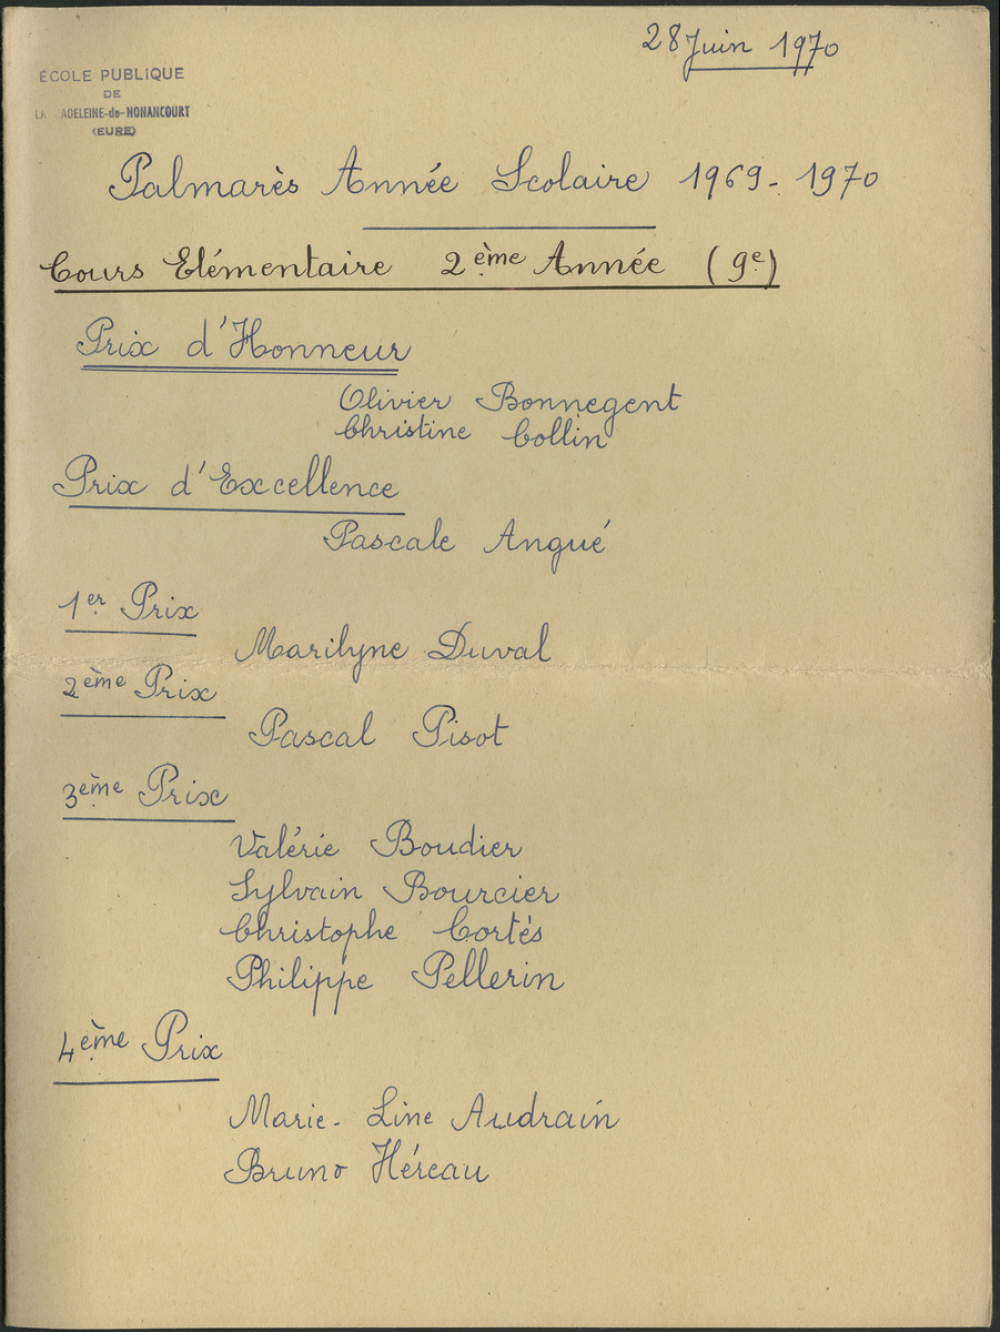 28 Juin 1970
ÉCOLE PUBLIQUE
DE
LA ADELEINE-de-NONANCOURT
(EURE)
Palmarès Année Scolaire 1969-1970
Cours Elémentaire 2ème Année (9e)
Prix d'Honneur
Olivier Bonnegent
Christine Collin
Prix d'Excellence
Pascale Angué
1er Prix
Marilyne Duval
2ème Prix
Pascal Pisot
3ème Prix
Valérie Boudier
Sylvain Bourcier
Christophe Cortès
Philippe Pellerin
4ème Prix
Marie-Line Audrain
Bruno Héreau